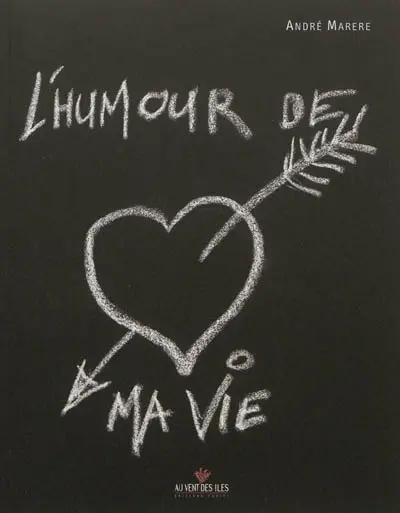 ANDRÉ MARERE
L'HUMOUR DE
MA VIE
AU VENT DES ILES
ÉDITIONS TAHITI